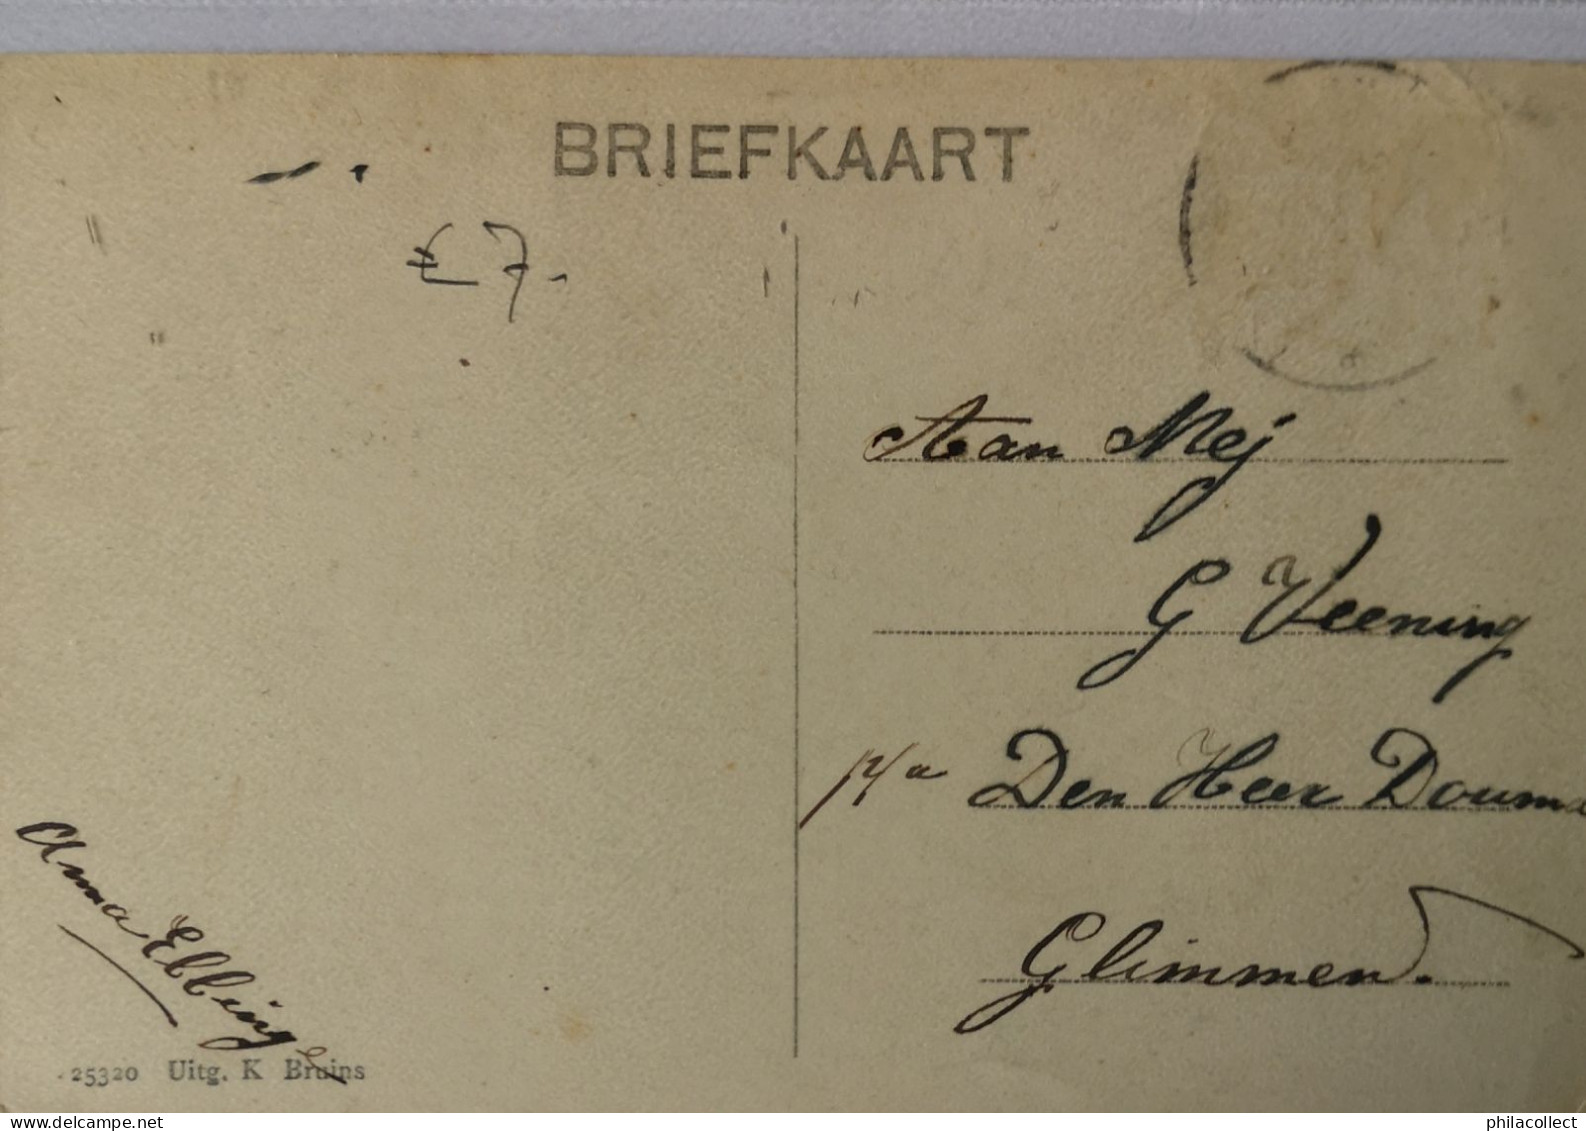 BRIEFKAART
€ 7.-
Aan Mej
G Veening
p/a Den Heer Douma
Glimmen.
Anna Ebbinge
25320 Uitg. K Bruins
philacollect